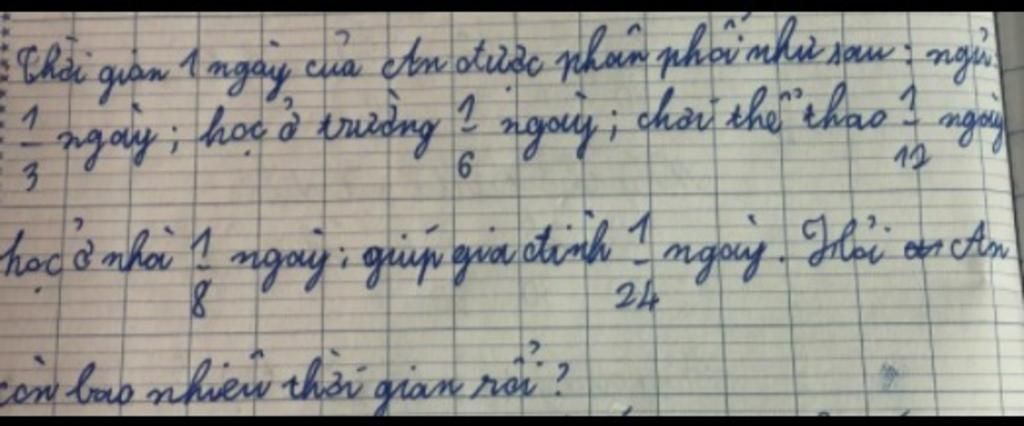 Thời gian 1 ngày của An được phân phối như sau: ngủ
1/3 ngày; học ở trường 1/6 ngày; chơi thể thao 1/12 ngày
học ở nhà 1/8 ngày; giúp gia đình 1/24 ngày. Hỏi An
còn bao nhiêu thời gian rỗi?